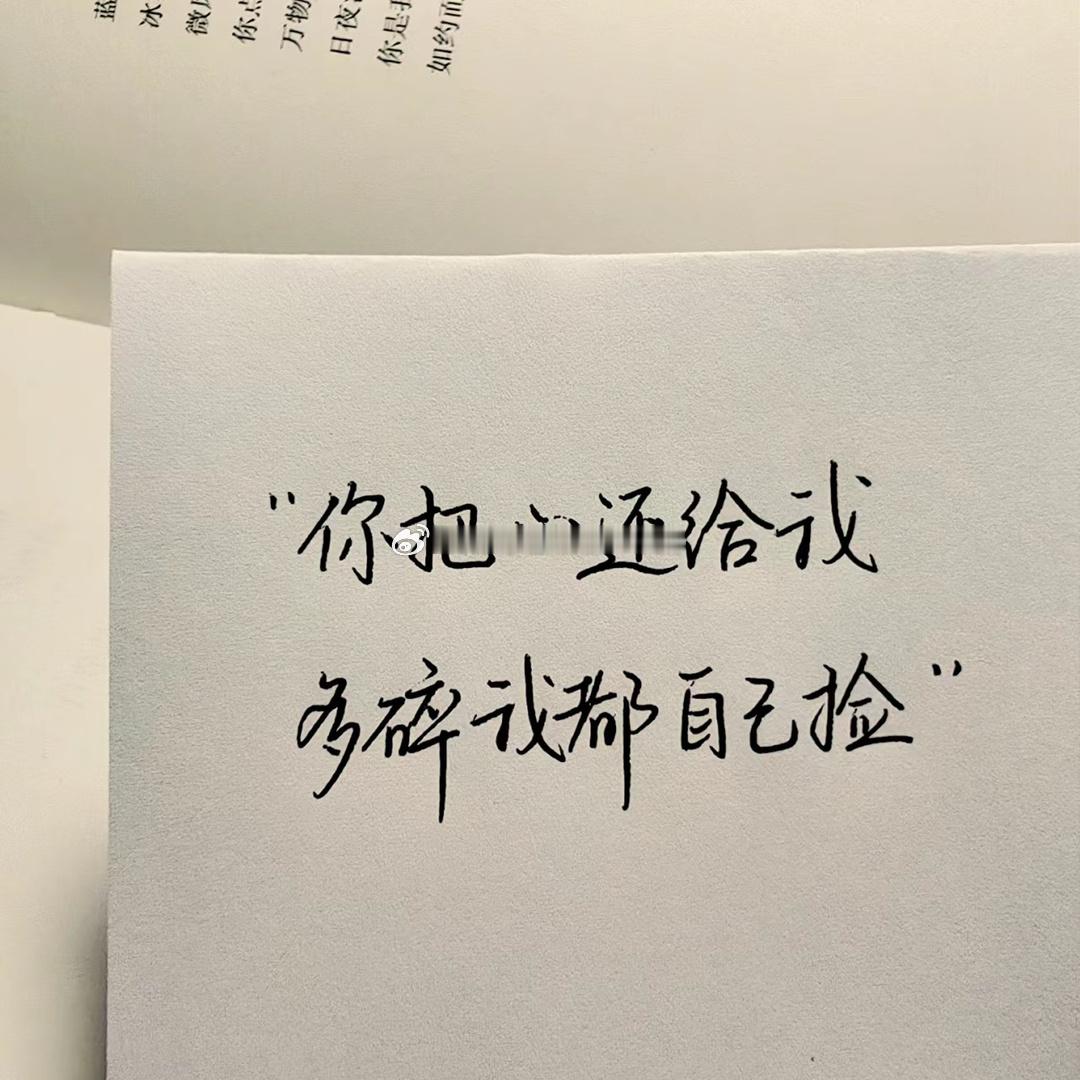 蓝
冰
微
你点
万物
日夜
你是我
如约而
“你把心还给我
多碎我都自己捡”